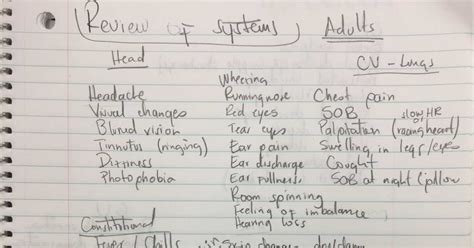 Review of systems
Adults
Head
Headache
Visual changes
Blurred vision
Tinnitus (ringing)
Dizziness
Photophobia
Wheezing
Running nose
Red eyes
Tear eyes
Ear pain
Ear discharge
Ear fullness
Room spinning
Feeling of imbalance
Hearing loss
CV - Lungs
Chest pain
SOB
slow HR
or
Palpitation (racing heart)
Swelling in legs/eyes
Cought
SOB at night (pillow
Constitutional
Fever / Chills